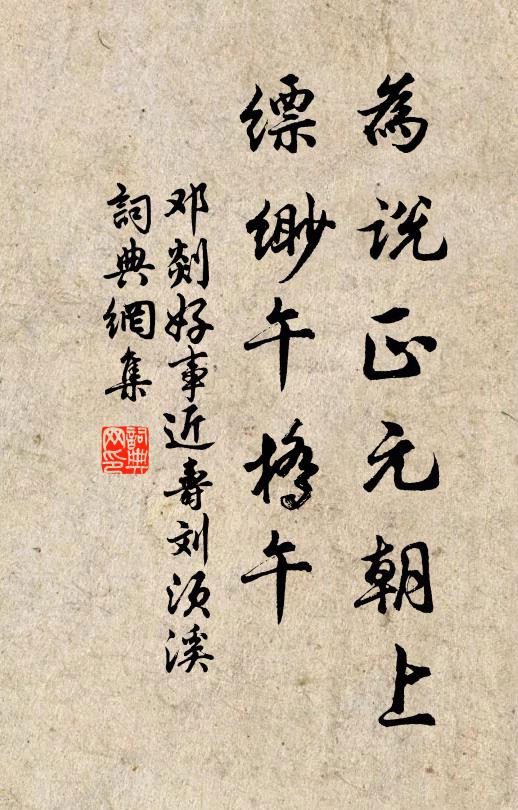 為说正元朝上
缥缈午桥午
邓剡好事近寿刘须溪
詞典網集
詞典网印